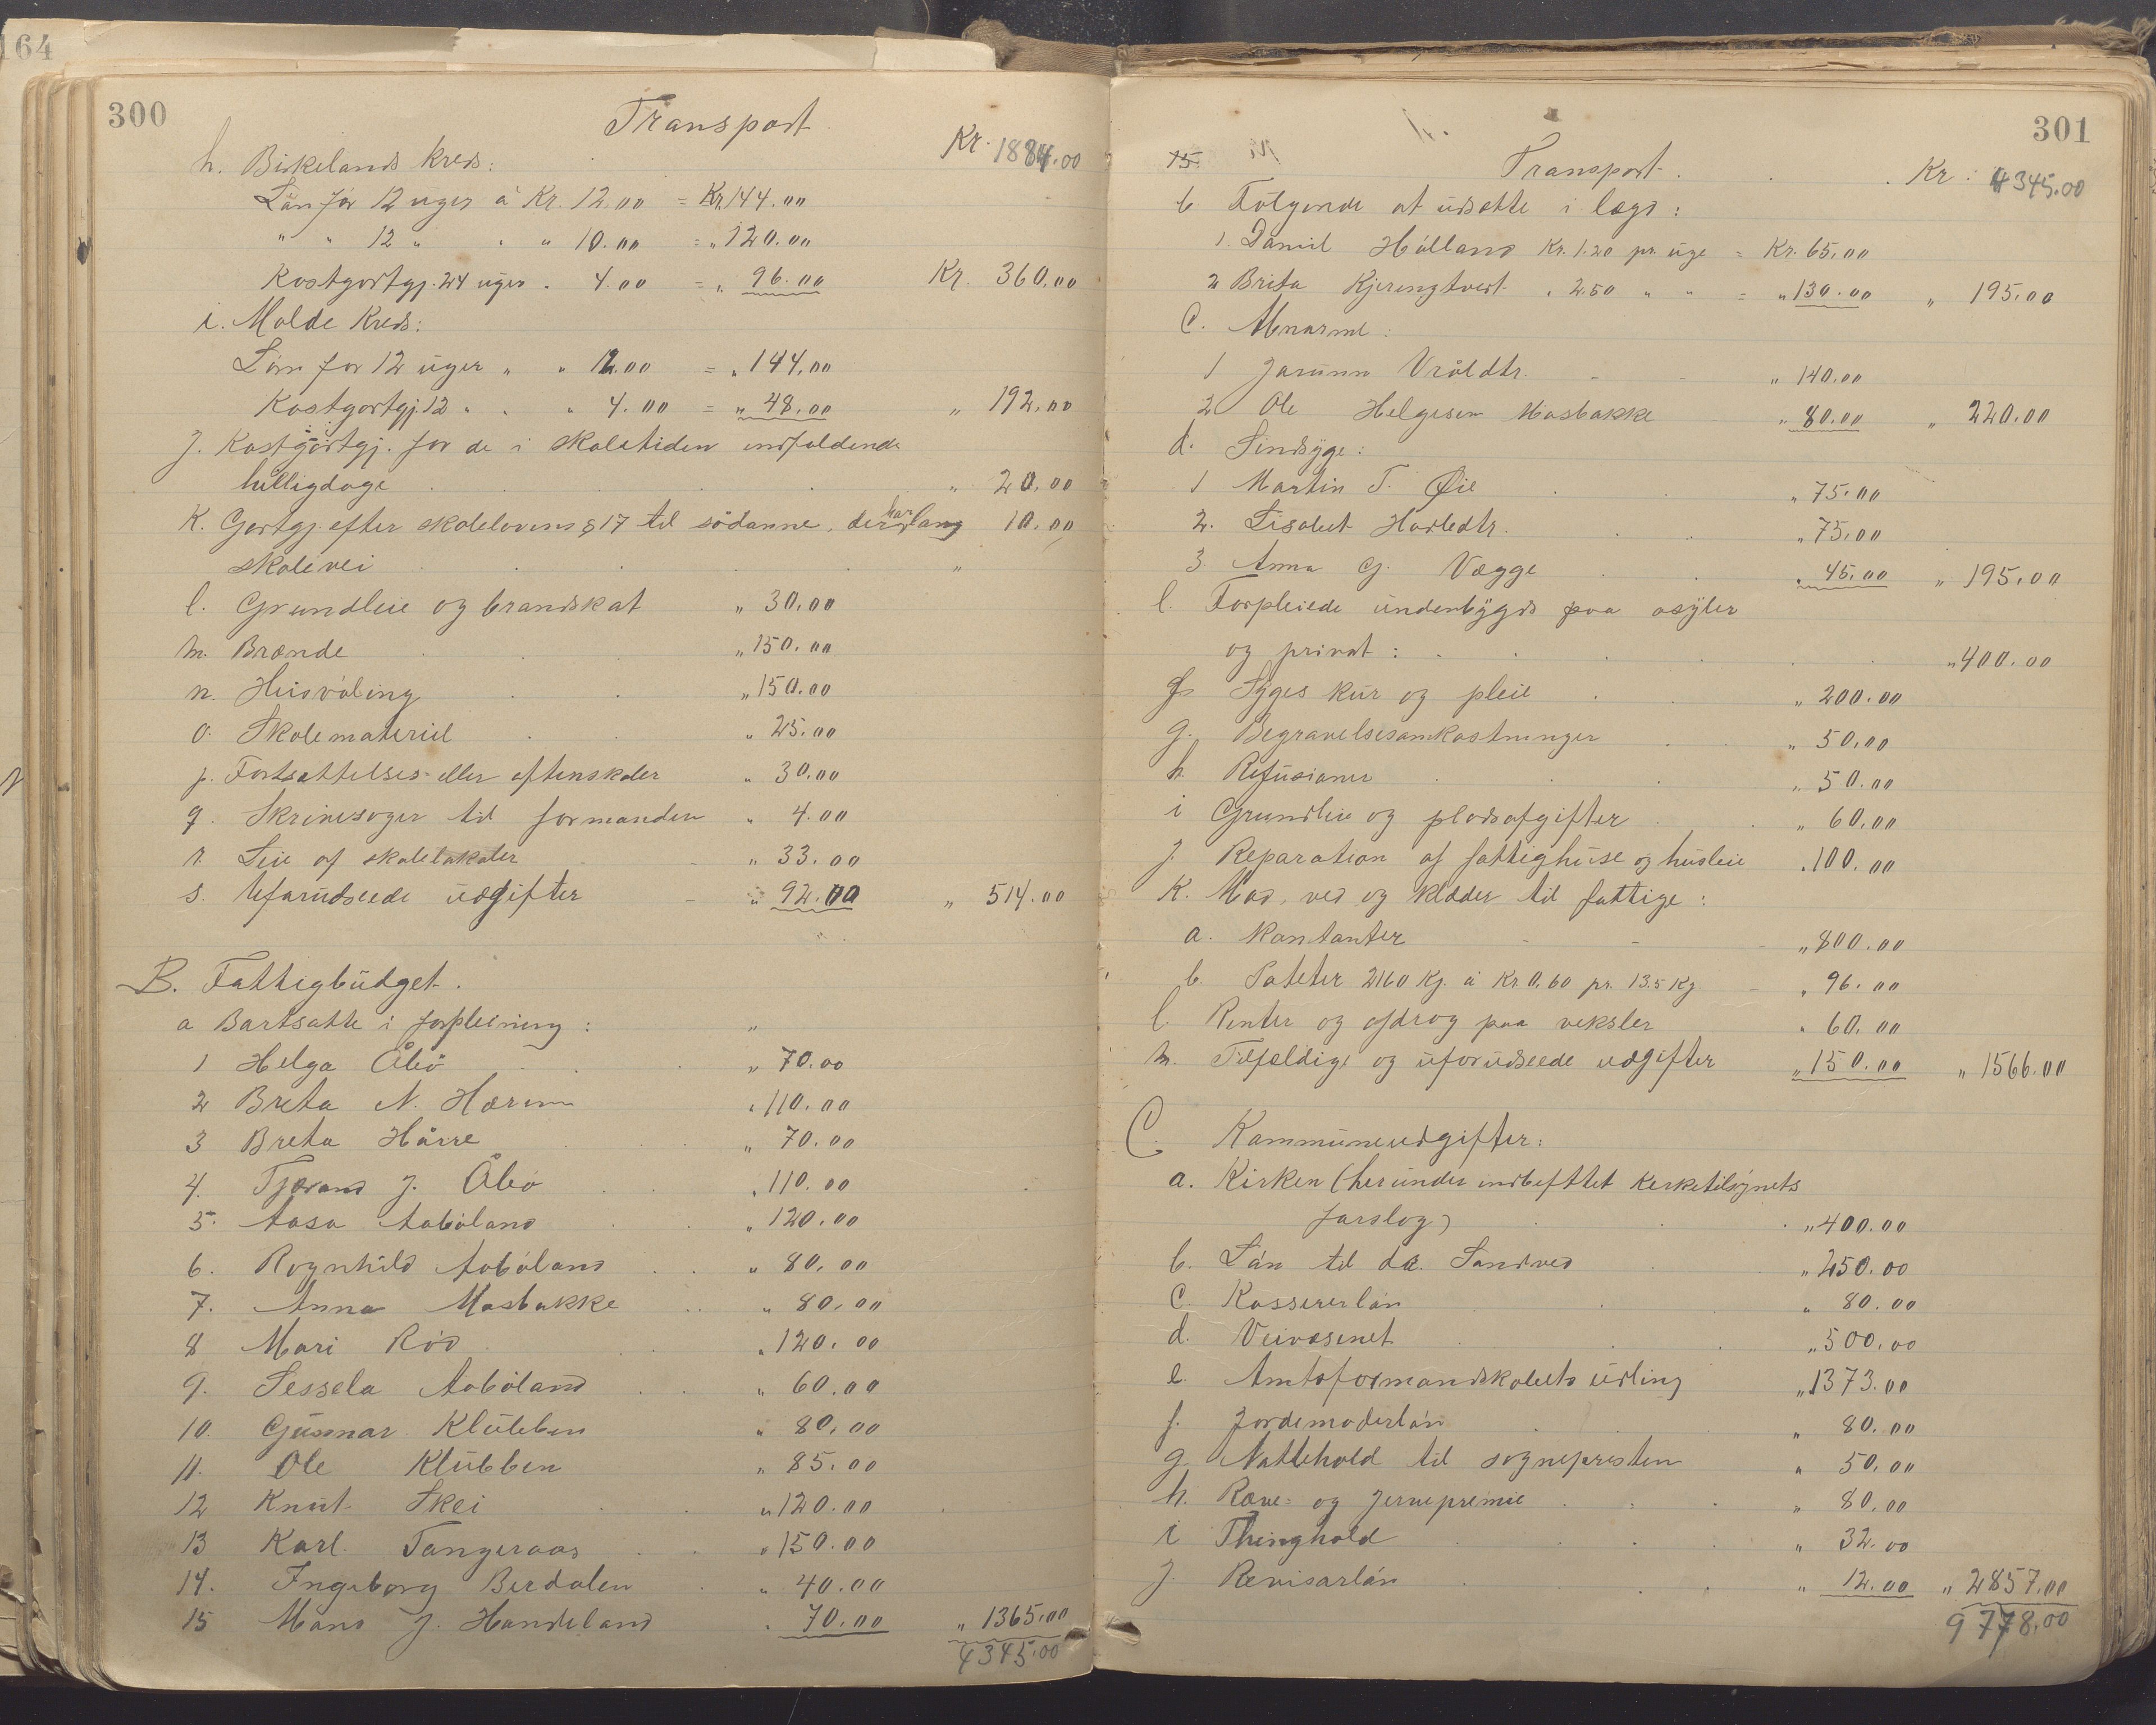 164
300
Transport
Kr. 1884.00
h. Birkelands kreds:
Løn for 12 uger à Kr. 12.00 = Kr. 144.00
" " 12 " " " 10.00 = " 120.00
Kostgortgj. 24 uger " 4.00 = " 96.00 Kr. 360.00
i. Molde Kreds:
Løn for 12 uger " " 12.00 = " 144.00
Kostgortgj. 12 " " " 4.00 = " 48.00 " 192.00
j. Kostgortgj. for de i skoletiden indfaldende
helligdage " 20.00
K. Gortgj. efter skolelovens § 17 til sådanne, der har lang 10.00
skolevei "
l. Grundleie og brandskat " 30.00
m. Brænde " 150.00
n. Husvóling " 150.00
o. Skolemateriel " 25.00
p. Fortsættelses- eller aftenskoler " 30.00
q. Skrivesager til formanden " 4.00
r. Leie af skolelokaler " 33.00
s. Uforudseede udgifter " 92.00 " 514.00
B. Fattigbudget.
a Bortsatte i forpleining: "
1 Helga Åbø " 70.00
2 Breta N. Hærem " 110.00
3 Breta Hårre " 70.00
4. Tjærand J. Åbø " 110.00
5. Aasa Aabøland " 120.00
6. Ragnhild Aabøland " 80.00
7. Anna Mosbakke " 80.00
8 Mari Röd " 120.00
9. Sessela Aabøland " 60.00
10. Gunnar Klubben " 80.00
11. Ole Klubben " 85.00
12 Knut Skei " 120.00
13 Karl Tangeraas " 150.00
14. Ingeborg Berdalen " 40.00
15 Mans J. Handeland " 70.00 " 1365.00
4345.00
301
15.
Transport. Kr: 4345.00
b Følgende at udsætte i lægd:
1. Daniel Hålland Kr. 1.20 pr. uge = Kr. 65.00
2 Brita Kjerringtveit " 2.50 " " = " 130.00 " 195.00
C. Alnarme:
1 Jorunn Vråldtr. " 140.00
2 Ole Helgesen Mosbakke " 80.00 " 220.00
d. Sindsyge:
1 Martin T. Øie " 75.00
2. Lisabet Hovledtr. " 75.00
3 Anna G. Vægge " 45.00 " 195.00
e. Forpleiede undenbygds paa asyler
og privat: " 400.00
f. Syges kur og pleie " 200.00
g. Begravelsesomkostninger " 50.00
h Refusioner " 50.00
i Grundleie og pladsafgifter " 60.00
j. Reparation af fattighuse og husleie " 100.00
K. Mad, ved og klæder til fattige:
a. Kontanter " 800.00
b. Poteter 2160 Kg. à Kr. 0.60 pr. 13.5 Kg " 96.00
l. Renter og afdrag paa veksler " 60.00
m. Tilfældige og uforudseede udgifter " 150.00 " 1566.00
C. Kommuneudgifter:
a. Kirken (herunder indbefattet kirketilsynets
forslag) " 400.00
b. Løn til da. Sandved " 250.00
C Kassererløn " 80.00
d. Veivæsenet " 500.00
e. Amtsformandskabets udling " 1373.00
f. Jordemoderløn " 80.00
g Nattehold til sognepresten " 50.00
h. Ræve- og Jervepremie " 80.00
i Thinghold " 32.00
j Revisorløn " 12.00 " 2857.00
9778.00